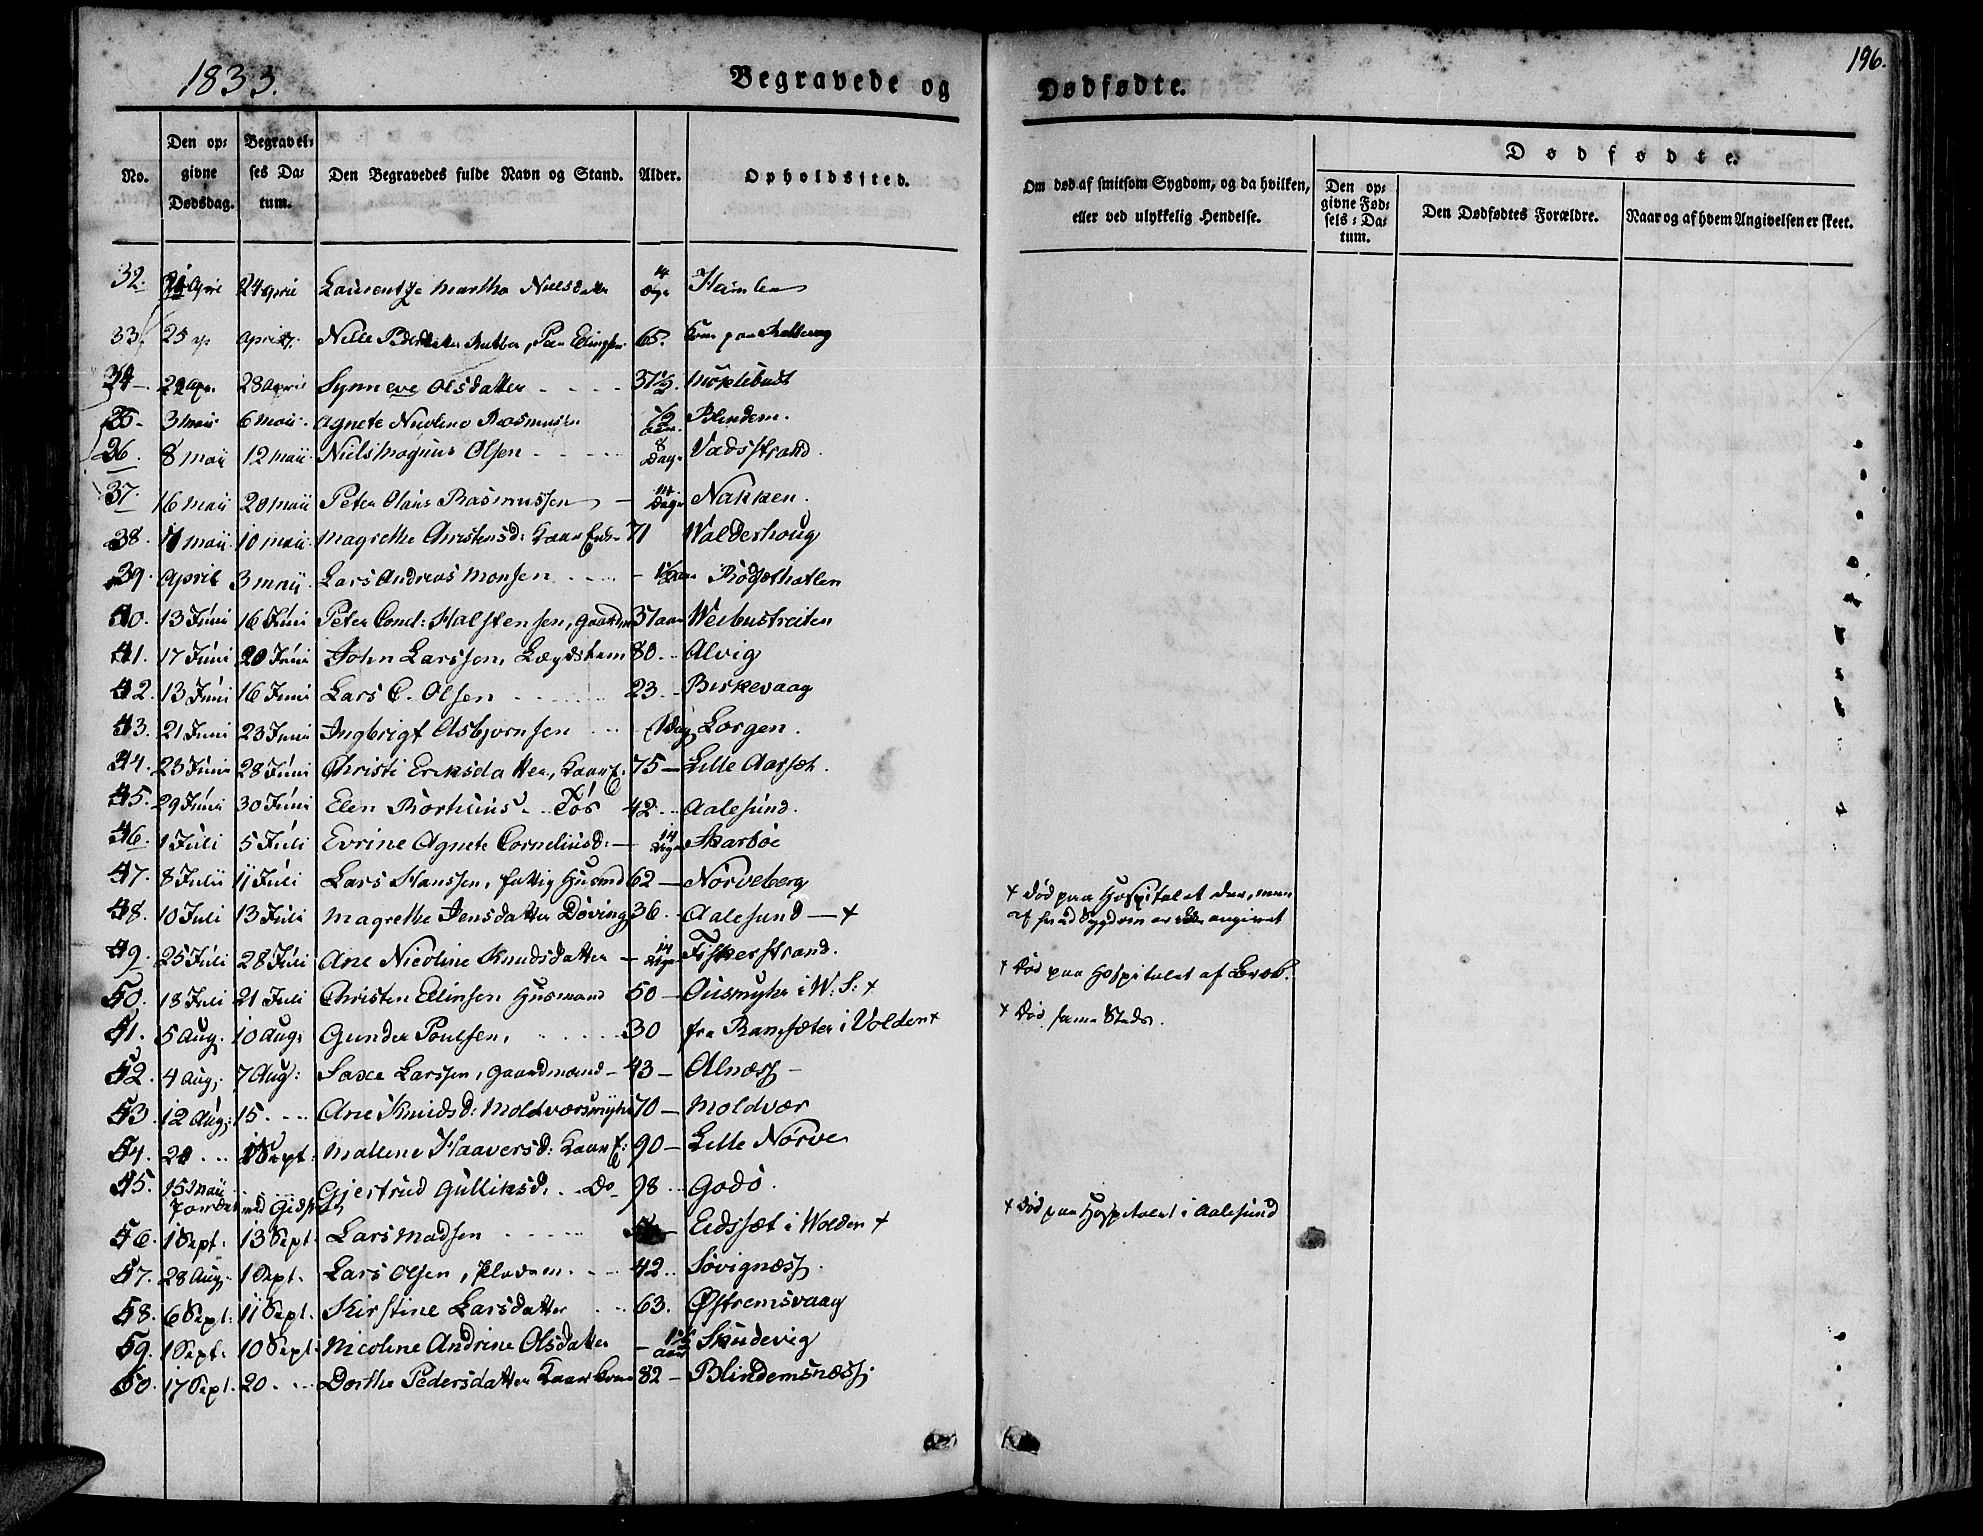 1833.
Begravede og
Dødfødte.
196.
No.
Den op-
givne
Dødsdag.
Begravel-
ses Da-
tum.
Den Begravedes fulde Navn og Stand.
Alder.
Opholdssted.
Om død af smitsom Sygdom, og da hvilken,
eller ved ulykkelig Hendelse.
Dødfødte.
Den op-
givne Fød-
sels-Da-
tum.
Den Dødfødtes Forældre.
Naar og af hvem Angivelsen er skeet.
32. April 24 April Laurentze Martha Nielsdatter 14 Dage
33. 25 65.
34 28 April Synneve Olsdatter 37½.
35 3 Maii 6 Maii Agnete Nicoline Rasmussen Blindem.
36. 8 Maii 12 Maii Niels Magnus Olsen 8 Dage Vadsstrand.
37. 16 Maii 20 Maii Peter Olaus Rasmussen 14 Dage Nakken.
38. Maii 10 Maii Magrethe Christensd: 71 Valderhoug
39. April 3 Maii Lars Andreas Monsen
40. 13 Juni 16 Juni Peter Cornel: Halstensen, 37 aar Weibustreiten
41. 17 Juni 20 Juni John Larssen, Lægdslem 80 Alvig
42. 13 Juni 16 Juni Lars C. Olsen 23 Biskevaag
43. 21 Juni 23 Juni Ingbrigt Asbjørnsen 1 Dag Lorgen.
44. 23 Juni 28 Juni Christi Eriksdatter, 75 — Lille Aarsæt.
45. 29 Juni 30 Juni Elen 42 Aalesund.
46. 1 Juli 5 Juli Evrine Agnete Corneliusd: 14 Dage Skarbøe
47. 8 Julii 11 Juli Lars Hanssen, fattig Husmd 62 — Nørveberg
48. 10 Juli 13 Juli Magrethe Jensdatter Døving 36. Aalesund — +
+ Død paa Hospitalet der, men
af hvad Sygdom er ei angivet
49. 25 Juli 28 Juli Ane Nicoline Knudsdatter — 14 Dage Fiskerstrand.
50. 18 Juli 21 Juli Christen Ellinsen Husmand 50 — i W: S: +
+ Død paa Hospitalet af
51. 5 Aug. 10 Aug: Gunder Poulsen, 30 fra i Volden +
+ Død samme Steds.
52. 4 Aug. 7 Aug: Saxe Larssen, Gaardmand — 43 — Alnæss —
53. 12 Aug: 15. Ane Knudsd: Moldværsmyhr 70 — Moldvær
54. Sept: Mallene Haaversd: 90 — Lille Nørve
55. 15 Maii Gjertrud Gulliksd. Do 98 Godø.
56. 1 Sept: 13 Sept: Lars Madsen Eidssæt i Wolden +
+ Død paa Hospitalet i Aalesund
57. 28 Aug. 1 Sept. Lars Olsen, 42 Søvignæss.
58. 6 Sept: 11 Sept. Kirstine Larsdatter 63. Østremsvaag
59. 1 Sept. 10 Sept: Nicoline Andrine Olsdatter — aar Skudevig
60. 17 Sept. 20 Dorthe Pedersdatter 82 — Blindemsnæss.